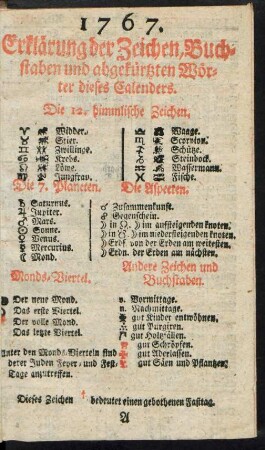 1767.
Erklärung der Zeichen, Buch-
staben und abgekürtzten Wör-
ter dieses Calenders.
Die 12. himmlische Zeichen.
♈ Widder.
♉ Stier.
♊ Zwillinge.
♋ Krebs.
♌ Löwe.
♍ Jungfrau.
♎ Waage.
♏ Scorpion.
♐ Schütze.
♑ Steinbock.
♒ Wassermann.
♓ Fische.
Die 7. Planeten.
♄ Saturnus.
♃ Jupiter.
♂ Mars.
☉ Sonne.
♀ Venus.
☿ Mercurius.
☾ Mond.
Monds-Viertel.
Der neue Mond.
Das erste Viertel.
Der volle Mond.
Das letzte Viertel.
Unter den Monds-Vierteln sind
derer Juden Feyer- und Fest-
Tage anzutreffen.
Die Aspecten.
☌ Zusammenkunft.
☍ Gegenschein.
☽ in ☊. ☽ im aufsteigenden knoten.
☽ in ☋. ☽ im niedersteigenden knoten.
☽ Erdf. von der Erden am weitesten.
☽ Erdn. der Erden am nächsten.
Andere Zeichen und
Buchstaben.
v. Vormittage.
n. Nachmittage.
gut Kinder entwöhnen.
gut Purgiren.
gut Holtzfällen.
gut Schröpfen.
gut Aderlassen.
gut Säen und Pflantzen
Dieses Zeichen † bedeutet einen gebothenen Fasttag.
A